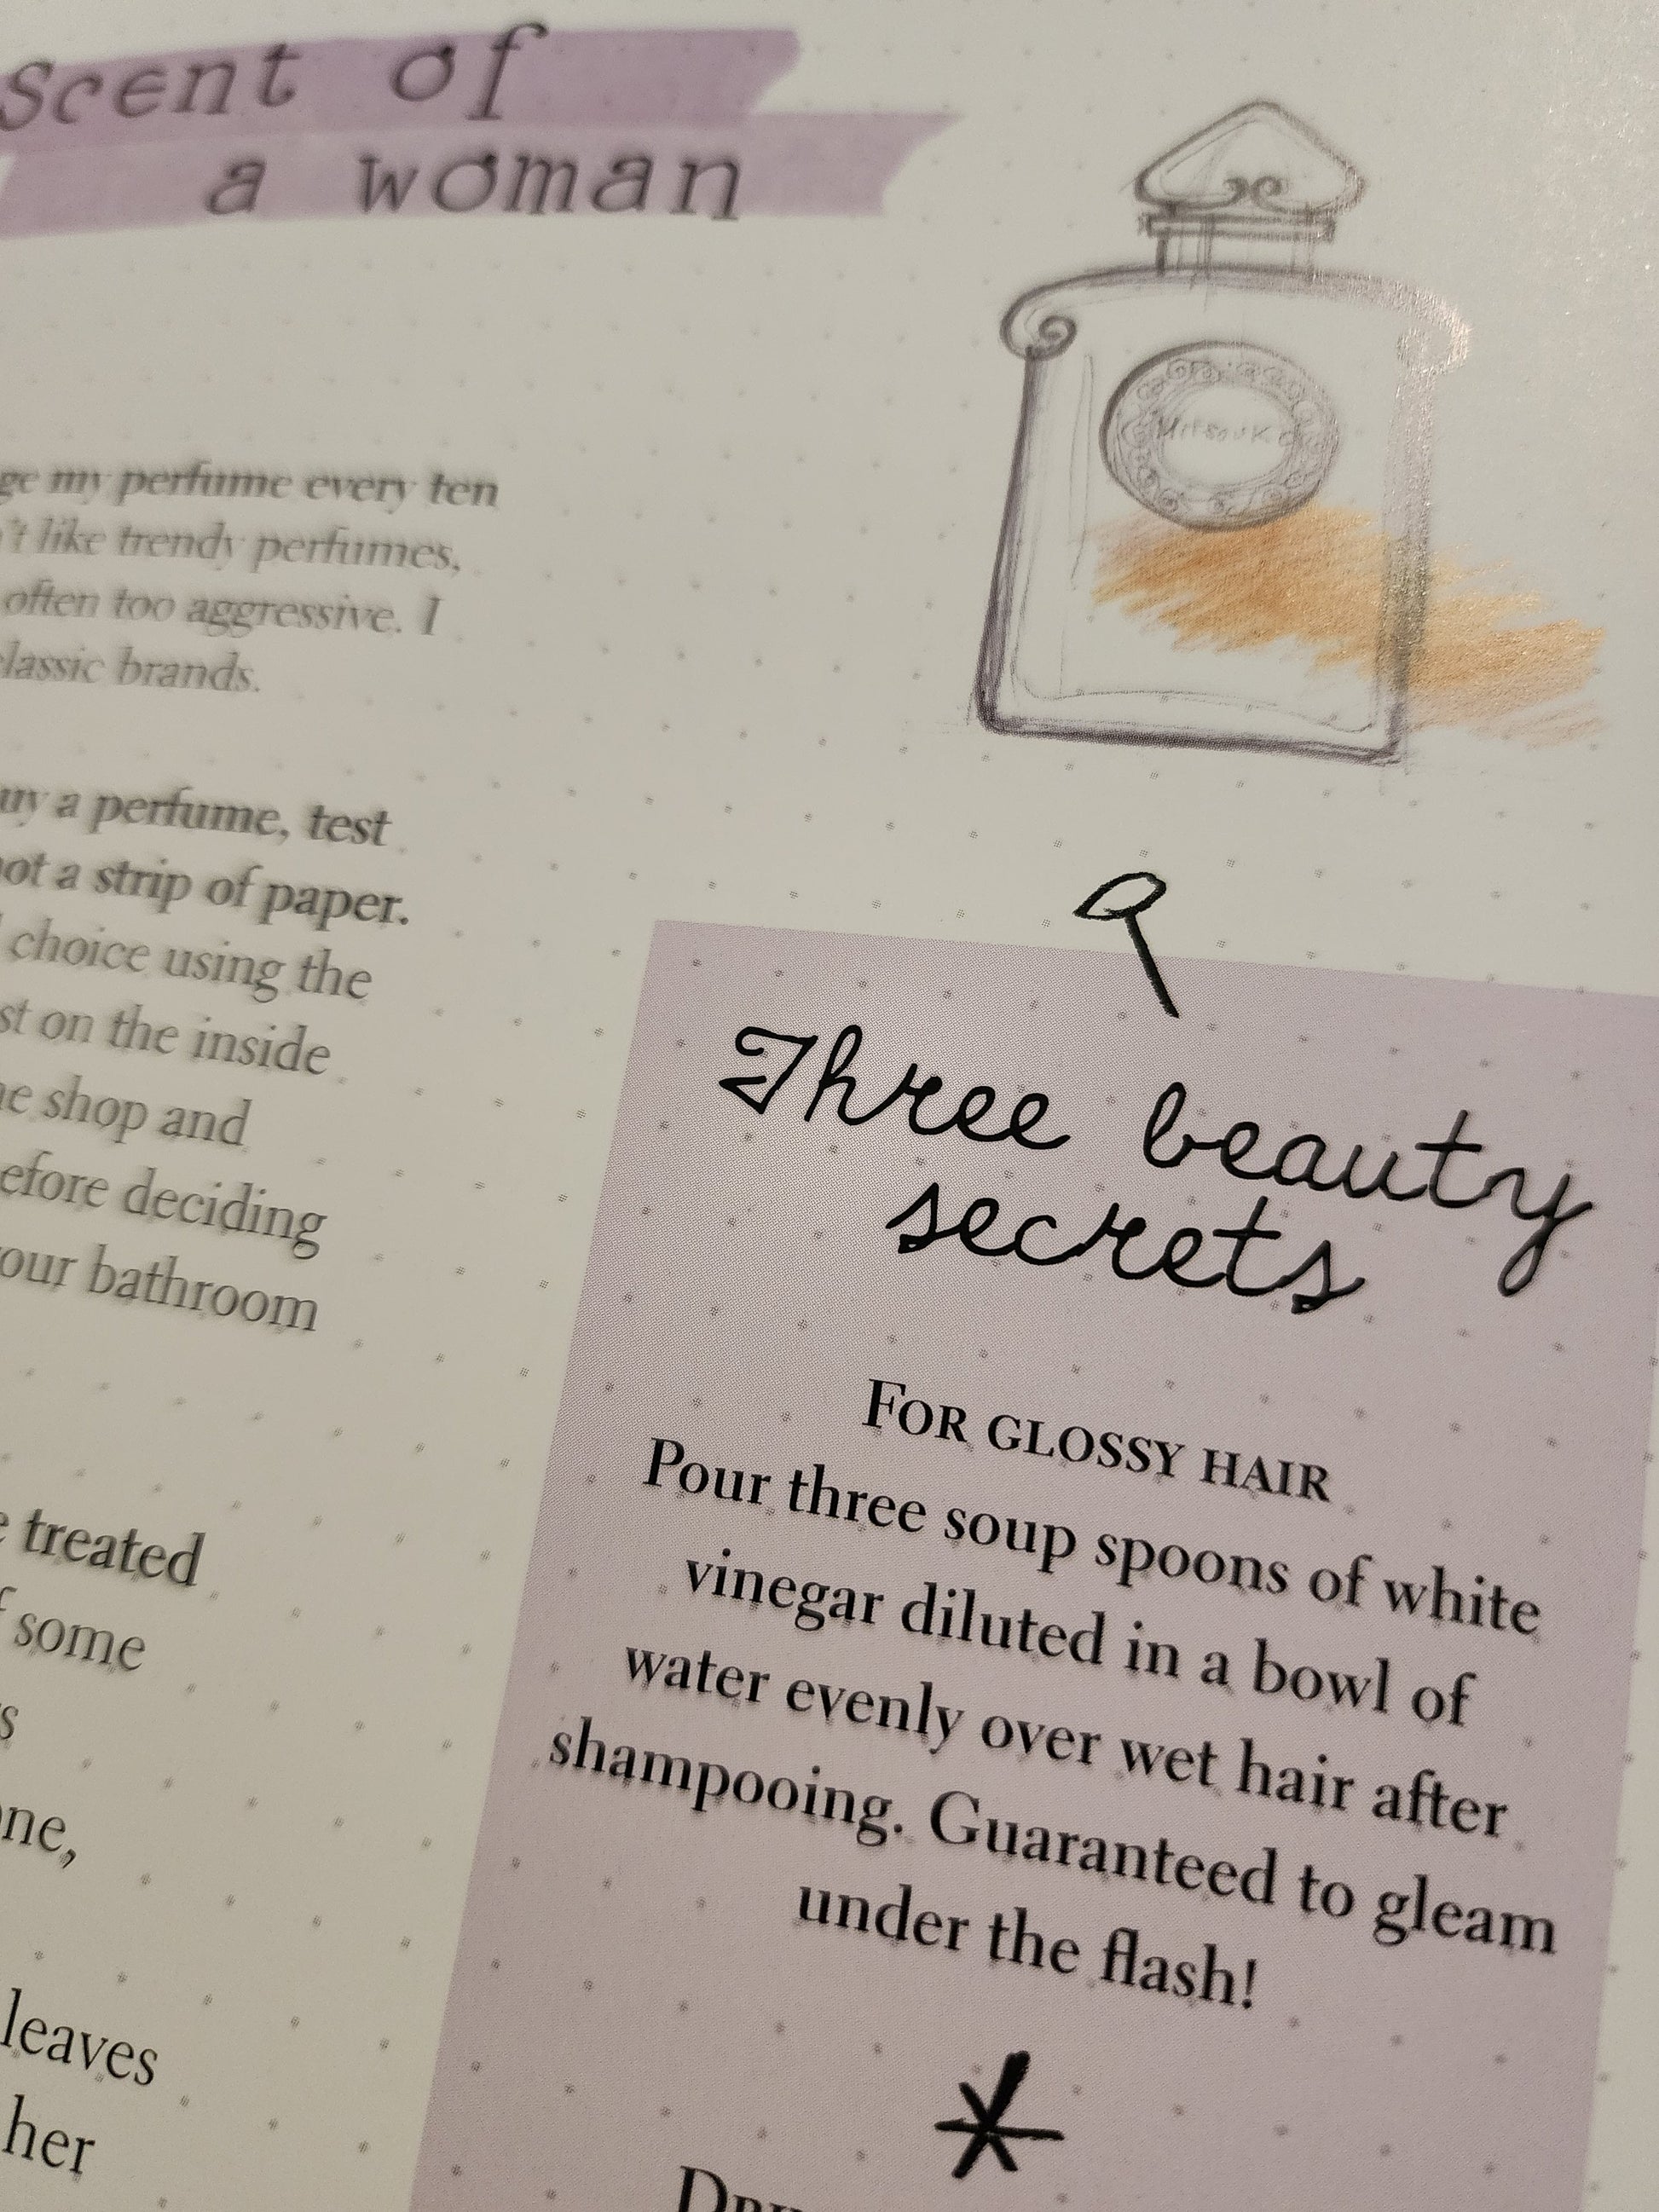 Scent of
a woman
Mitsouko
my perfume every ten
like trendy perfumes,
often too aggressive. I
classic brands.
a perfume, test
not a strip of paper.
choice using the
on the inside
shop and
before deciding
your bathroom
treated
some
leaves
her
Three beauty
secrets
FOR GLOSSY HAIR
Pour three soup spoons of white
vinegar diluted in a bowl of
water evenly over wet hair after
shampooing. Guaranteed to gleam
under the flash!